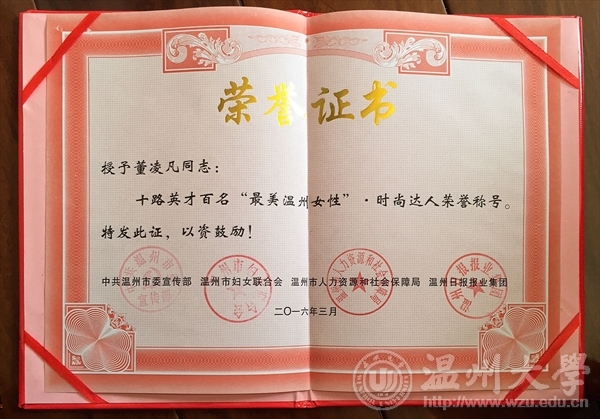 荣誉证书
授予董凌凡同志：
十路英才百名“最美温州女性”·时尚达人荣誉称号。
特发此证，以资鼓励！
中共温州市委宣传部 温州市妇女联合会 温州市人力资源和社会保障局 温州日报报业集团
二〇一六年三月
温州大学
http://www.wzu.edu.cn